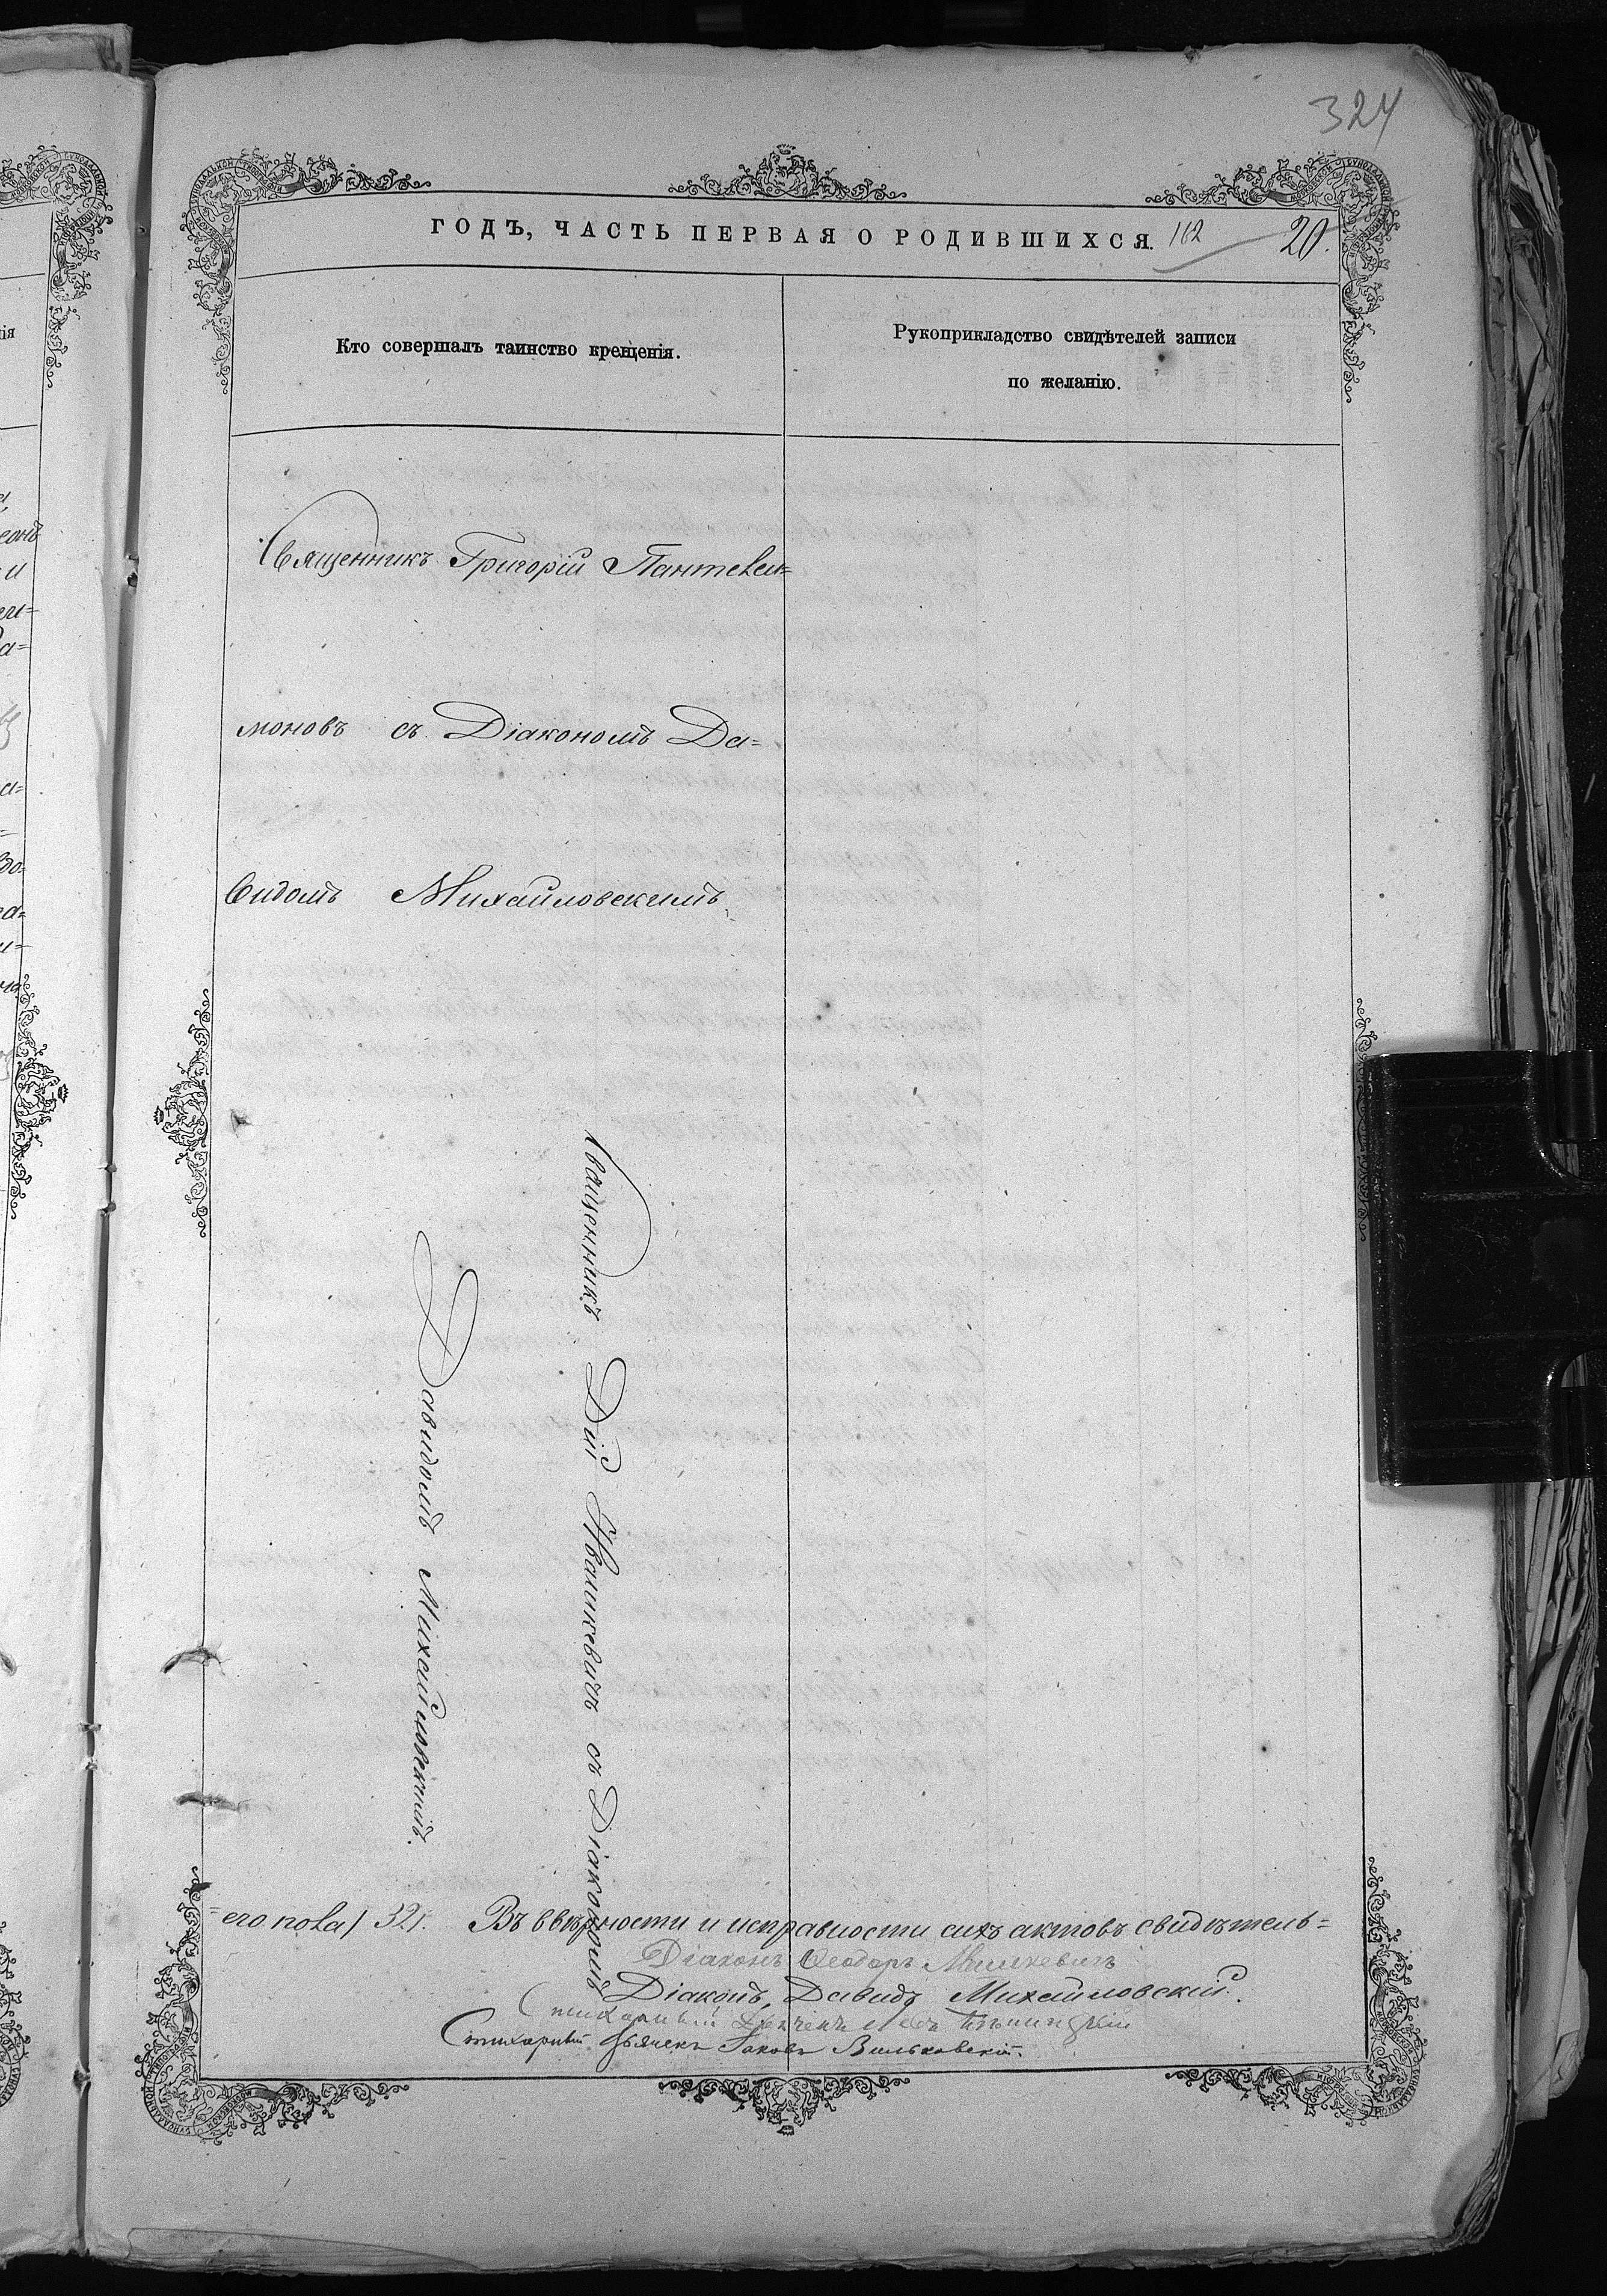 324
ГОДЪ, ЧАСТЬ ПЕРВАЯ О РОДИВШИХСЯ. 162 20.
Кто совершалъ таинство крещенія.
Рукоприкладство свидѣтелей записи
по желанію.
Священникъ Григорій Пантелеи=
моновъ съ Діакономъ Да=
видомъ Михайловскимъ
Священникъ Дій Ивашкевичъ съ Діакономъ
Давидомъ Михайловскимъ.
=его пола) 32). Въ ввѣрности и исправности сихъ актовъ свидѣтель=
Діаконъ Ѳеодоръ Мишкевичъ
Діаконъ, Давидъ Михайловскій.
Стихарный Дьячекъ
Стихарный Дьячекъ Іаковъ Вильковскій.